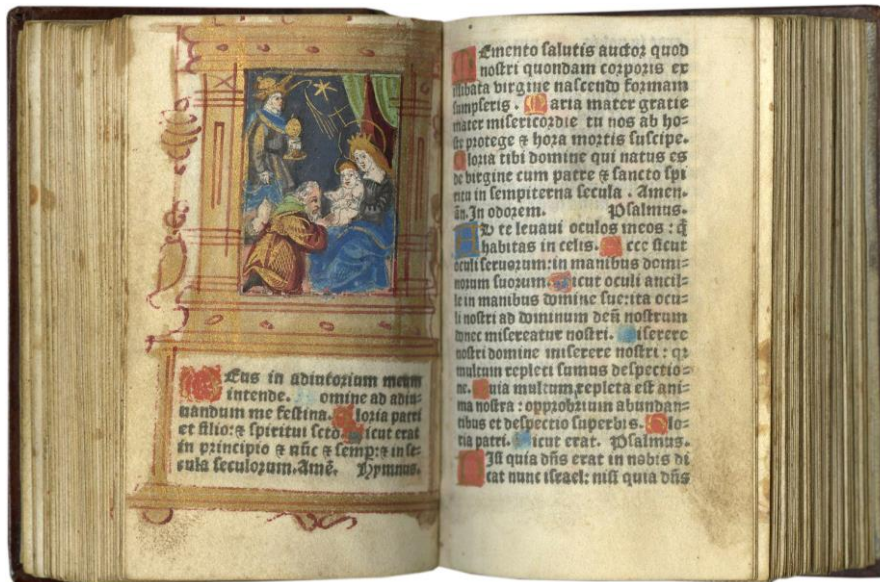 DEus in adiutorium meum
intende. Domine ad adiu-
uandum me festina. Gloria patri
et filio: ⁊ spiritui scto. Sicut erat
in principio ⁊ nũc ⁊ semp: ⁊ in se-
cula seculorum. Amẽ. Hymnus.
MEmento salutis auctor quod
nostri quondam corporis ex
illibata virgine nascendo formam
sumpseris. Maria mater gratie
mater misericordie tu nos ab ho-
ste protege ⁊ hora mortis suscipe.
Gloria tibi domine qui natus es
de virgine cum patre ⁊ sancto spi
ritu in sempiterna secula. Amen.
añ. In odorem. Psalmus.
AD te leuaui oculos meos: q̃
habitas in celis. Ecce sicut
oculi seruorum: in manibus domi-
norum suorum. Sicut oculi ancil-
le in manibus domine sue: ita ocu-
li nostri ad dominum deũ nostrum
donec misereatur nostri. Miserere
nostri domine miserere nostri: qr
multum repleti sumus despectio-
ne. Quia multum repleta est ani-
ma nostra: opprobrium abundan-
tibus et despectio superbis. Glo-
ria patri. Sicut erat. Psalmus.
NIsi quia dñs erat in nobis di
cat nunc israel: nisi quia dñs